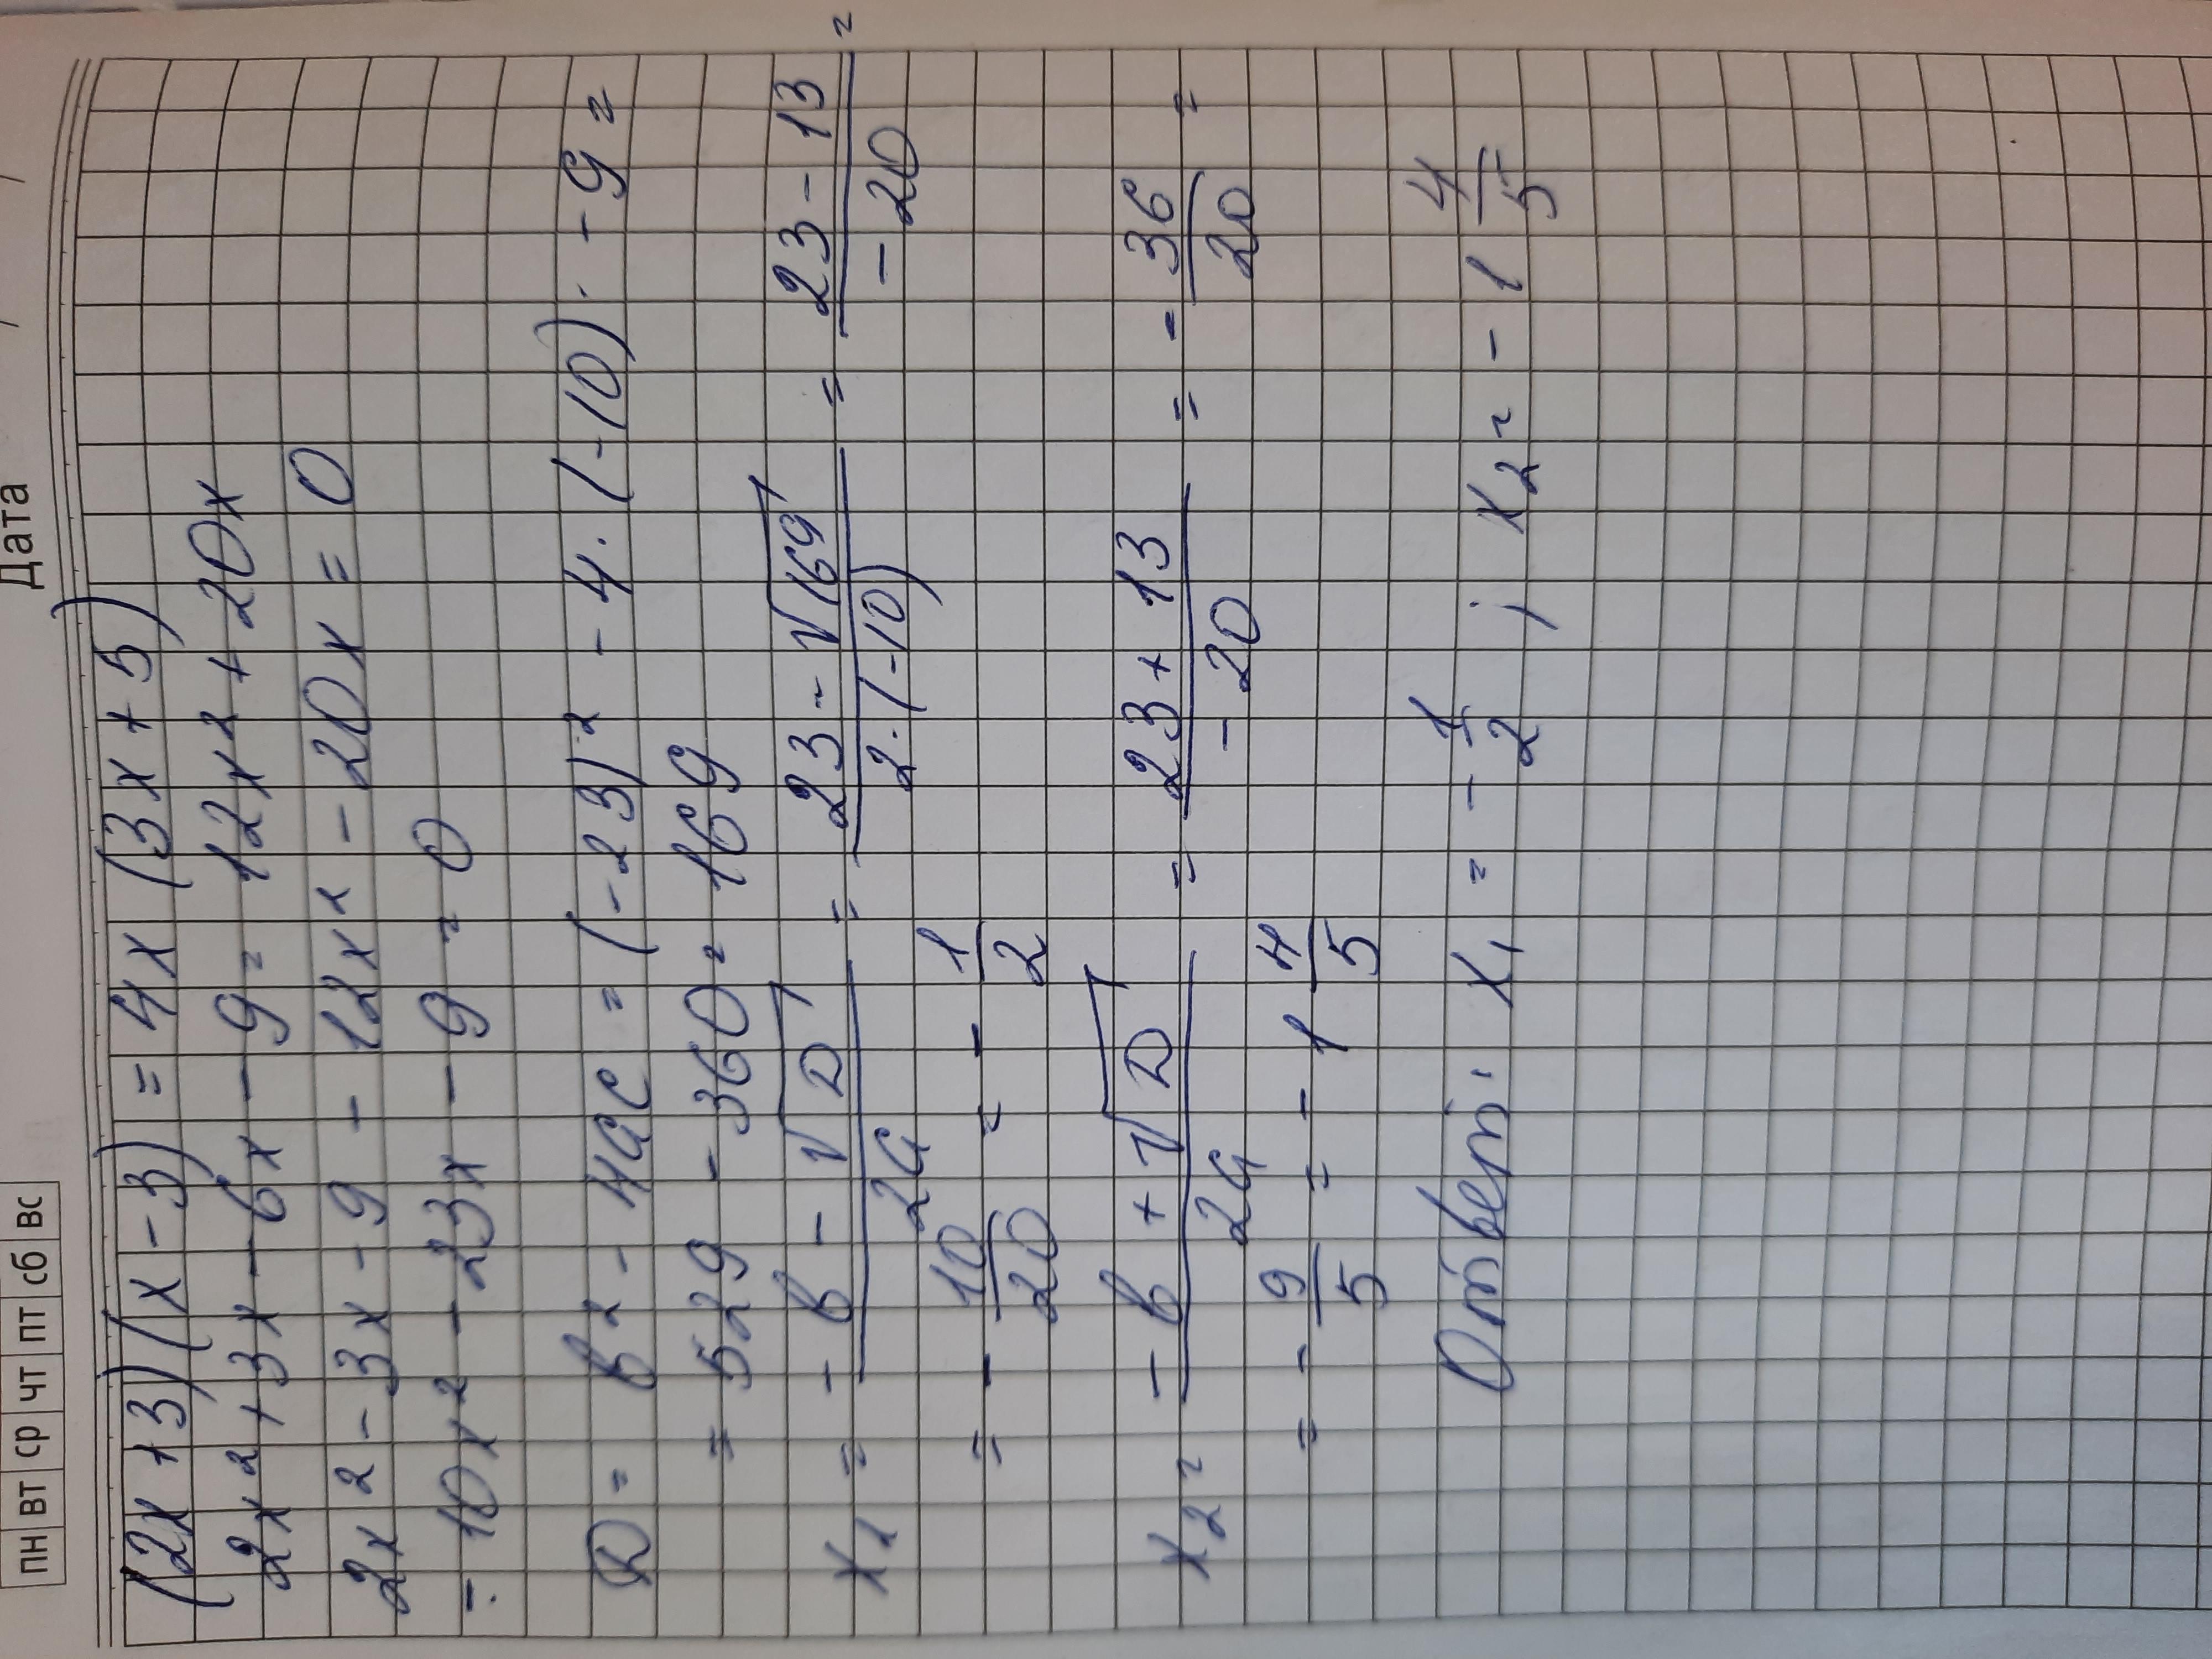 Дата / /
пн вт ср чт пт сб вс
(2x+3)(x-3) = 4x(3x+5)
2x²+3x-6x-9=12x²+20x
2x²-3x-9-12x²-20x=0
-10x²-23x-9=0
D = b²-4ac = (-23)²-4·(-10)·-9=
=529-360=169
x₁ = (-b-√D)/2a = (23-√169)/(2·(-10)) = (23-13)/(-20) =
= -10/20 = -1/2
x₂ = (-b+√D)/2a = (23+13)/(-20) = -36/20 =
= -9/5 = -1 4/5
Ответ: x₁ = -1/2; x₂ = -1 4/5